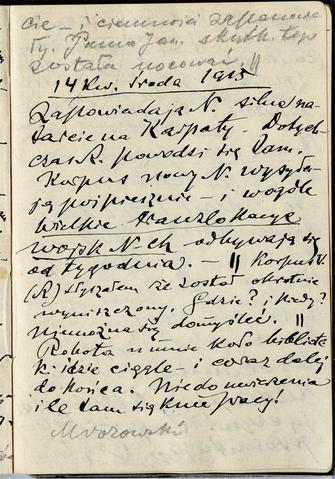 cie – i ciemności zapanowa-
ły. Panna Jan. skutk. tego
została nocować. ||
14 Kw. środa 1915
Zapowiadają N. silne na-
tarcie na Karpaty. Dotych-
czas R. powodzi się tam.
Korpus nowy N. wysyła-
ją pośpiesznie – i wogóle
wielkie translokacye
wojsk N.ch odbywają się
od tygodnia. – || Korpus V.
(R.) słyszałem że został okrutnie
wyniszczony. Gdzie? i kiedy?
niemożna się domyśleć. ||
Robota u mnie koło bibliotek
k. idzie ciągle – i coraz dalej
do końca. Nie do uwierzenia
ile tam się kryje pracy!
Mrozowski